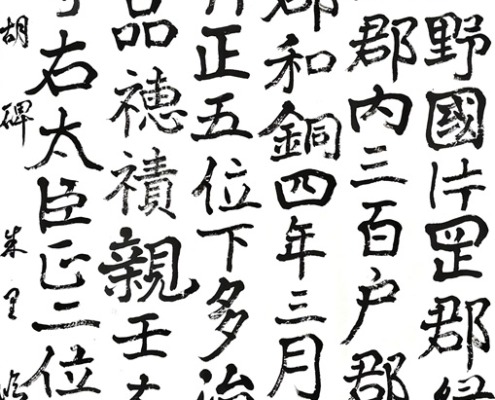 野國片罡郡
郡内三百户郡
郡和銅四年三月
正五位下多治
品穂積親王太
右太臣正二位
胡碑 朱里 臨